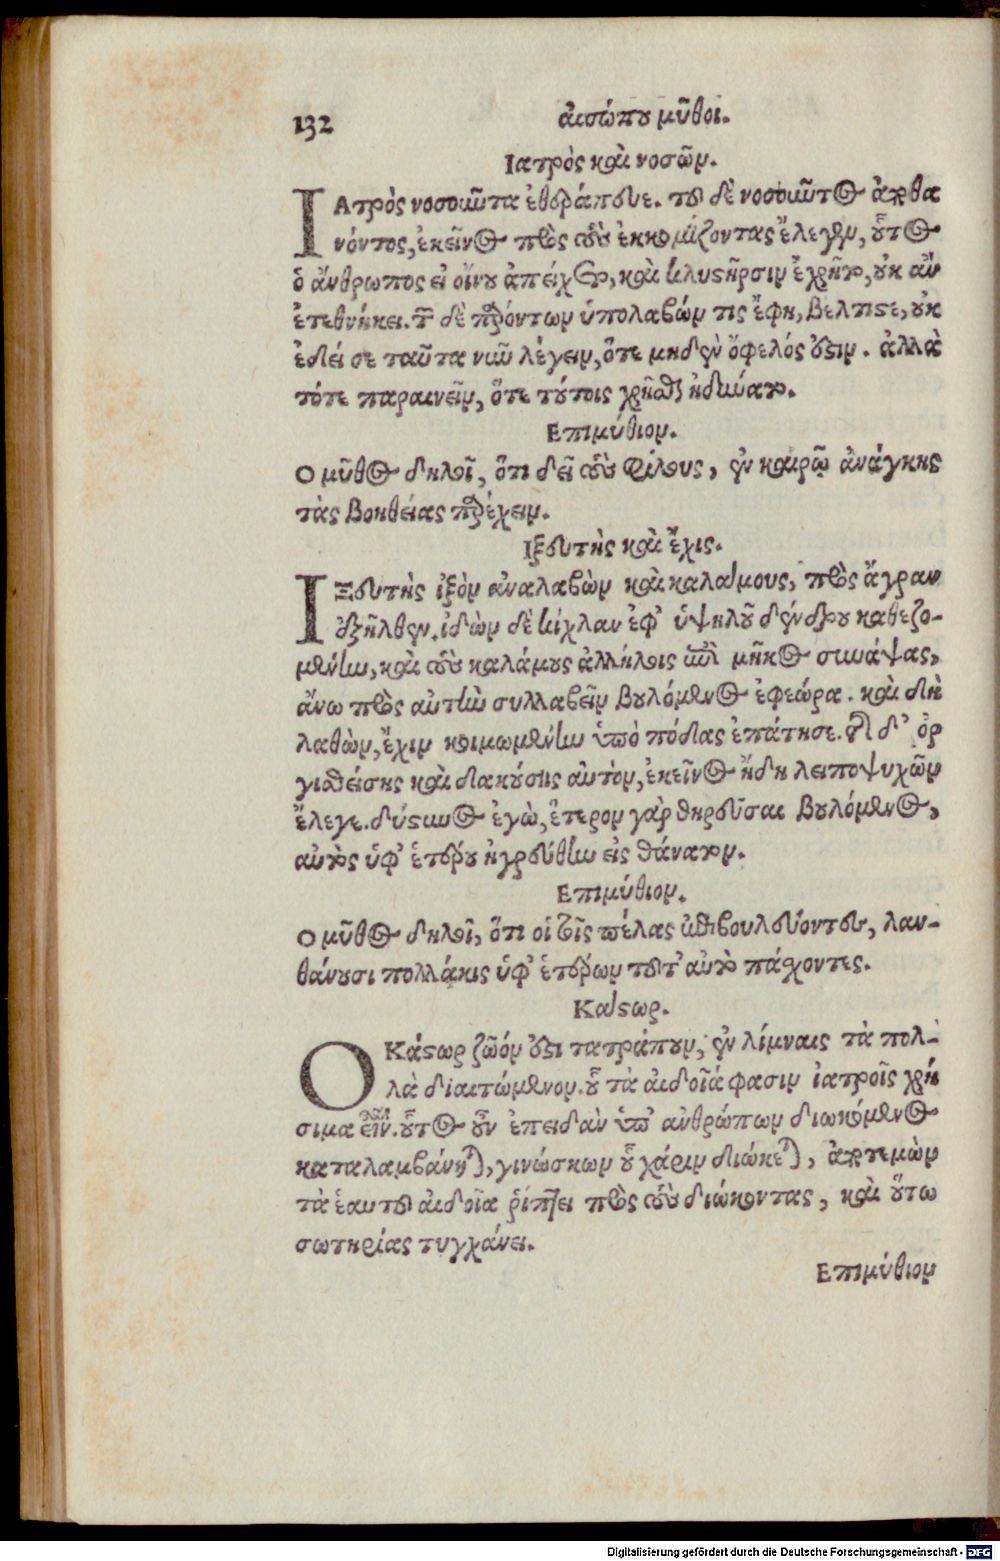 132 αἰσώπου μῦθοι.
Ιατρὸς καὶ νοσῶν.
ΙΑτρὸς νοσοῦντα ἐθεράπευε. τοῦ δὲ νοσοῦντος ἀποθα
νόντος, ἐκεῖνος πρὸς τοὺς ἐκκομίζοντας ἔλεγεν, οὗτος
ὁ ἄνθρωπος εἰ οἴνου ἀπείχετο, καὶ κλυστῆρσιν ἐχρῆτο, οὐκ ἂν
ἐτεθνήκει. τῶν δὲ παρόντων ὑπολαβών τις ἔφη, βέλτιστε, οὐκ
ἔδει σε ταῦτα νῦν λέγειν, ὅτε μηδὲν ὄφελός ἐστιν. ἀλλὰ
τότε παραινεῖν, ὅτε τούτοις χρῆσθαι ἠδύνατο.
Επιμύθιον.
Ο μῦθος δηλοῖ, ὅτι δεῖ τοὺς φίλους, ἐν καιρῷ ἀνάγκης
τὰς βοηθείας παρέχειν.
Ιξευτὴς καὶ ἔχις.
ΙΞευτὴς ἰξὸν ἀναλαβὼν καὶ καλάμους, πρὸς ἄγραν
ἐξῆλθεν. ἰδὼν δὲ κίχλαν ἐφ' ὑψηλοῦ δένδρου καθεζο-
μένην, καὶ τοὺς καλάμους ἀλλήλοις ἐπὶ μῆκος συνάψας,
ἄνω πρὸς αὐτὴν συλλαβεῖν βουλόμενος ἐφεώρα. καὶ δὴ
λαθὼν, ἔχιν κοιμωμένην ὑπὸ πόδας ἐπάτησε. τῆς δ' ὀρ
γισθείσης καὶ δακούσης αὐτὸν, ἐκεῖνος ἤδη λειποψυχῶν
ἔλεγε. δύστηνος ἐγὼ, ἕτερον γὰρ θηρεῦσαι βουλόμενος,
αὐτὸς ὑφ' ἑτέρου ἠγρεύθην εἰς θάνατον.
Επιμύθιον.
Ο μῦθος δηλοῖ, ὅτι οἱ τοῖς πέλας ἐπιβουλεύοντες, λαν-
θάνουσι πολλάκις ὑφ' ἑτέρων τοῦτ' αὐτὸ πάσχοντες.
Κάστωρ.
Ο Κάστωρ ζῶόν ἐστι τετράπουν, ἐν λίμναις τὰ πολ-
λὰ διαιτώμενον. οὗ τὰ αἰδοῖά φασιν ἰατροῖς χρή
σιμα εἶναι. οὗτος οὖν ἐπειδὰν ὑπ' ἀνθρώπων διωκόμενος
καταλαμβάνηται, γινώσκων οὗ χάριν διώκεται, ἀποτεμὼν
τὰ ἑαυτοῦ αἰδοῖα ῥίπτει πρὸς τοὺς διώκοντας, καὶ οὕτω
σωτηρίας τυγχάνει.
Επιμύθιον
Digitalisierung gefördert durch die Deutsche Forschungsgemeinschaft - DFG